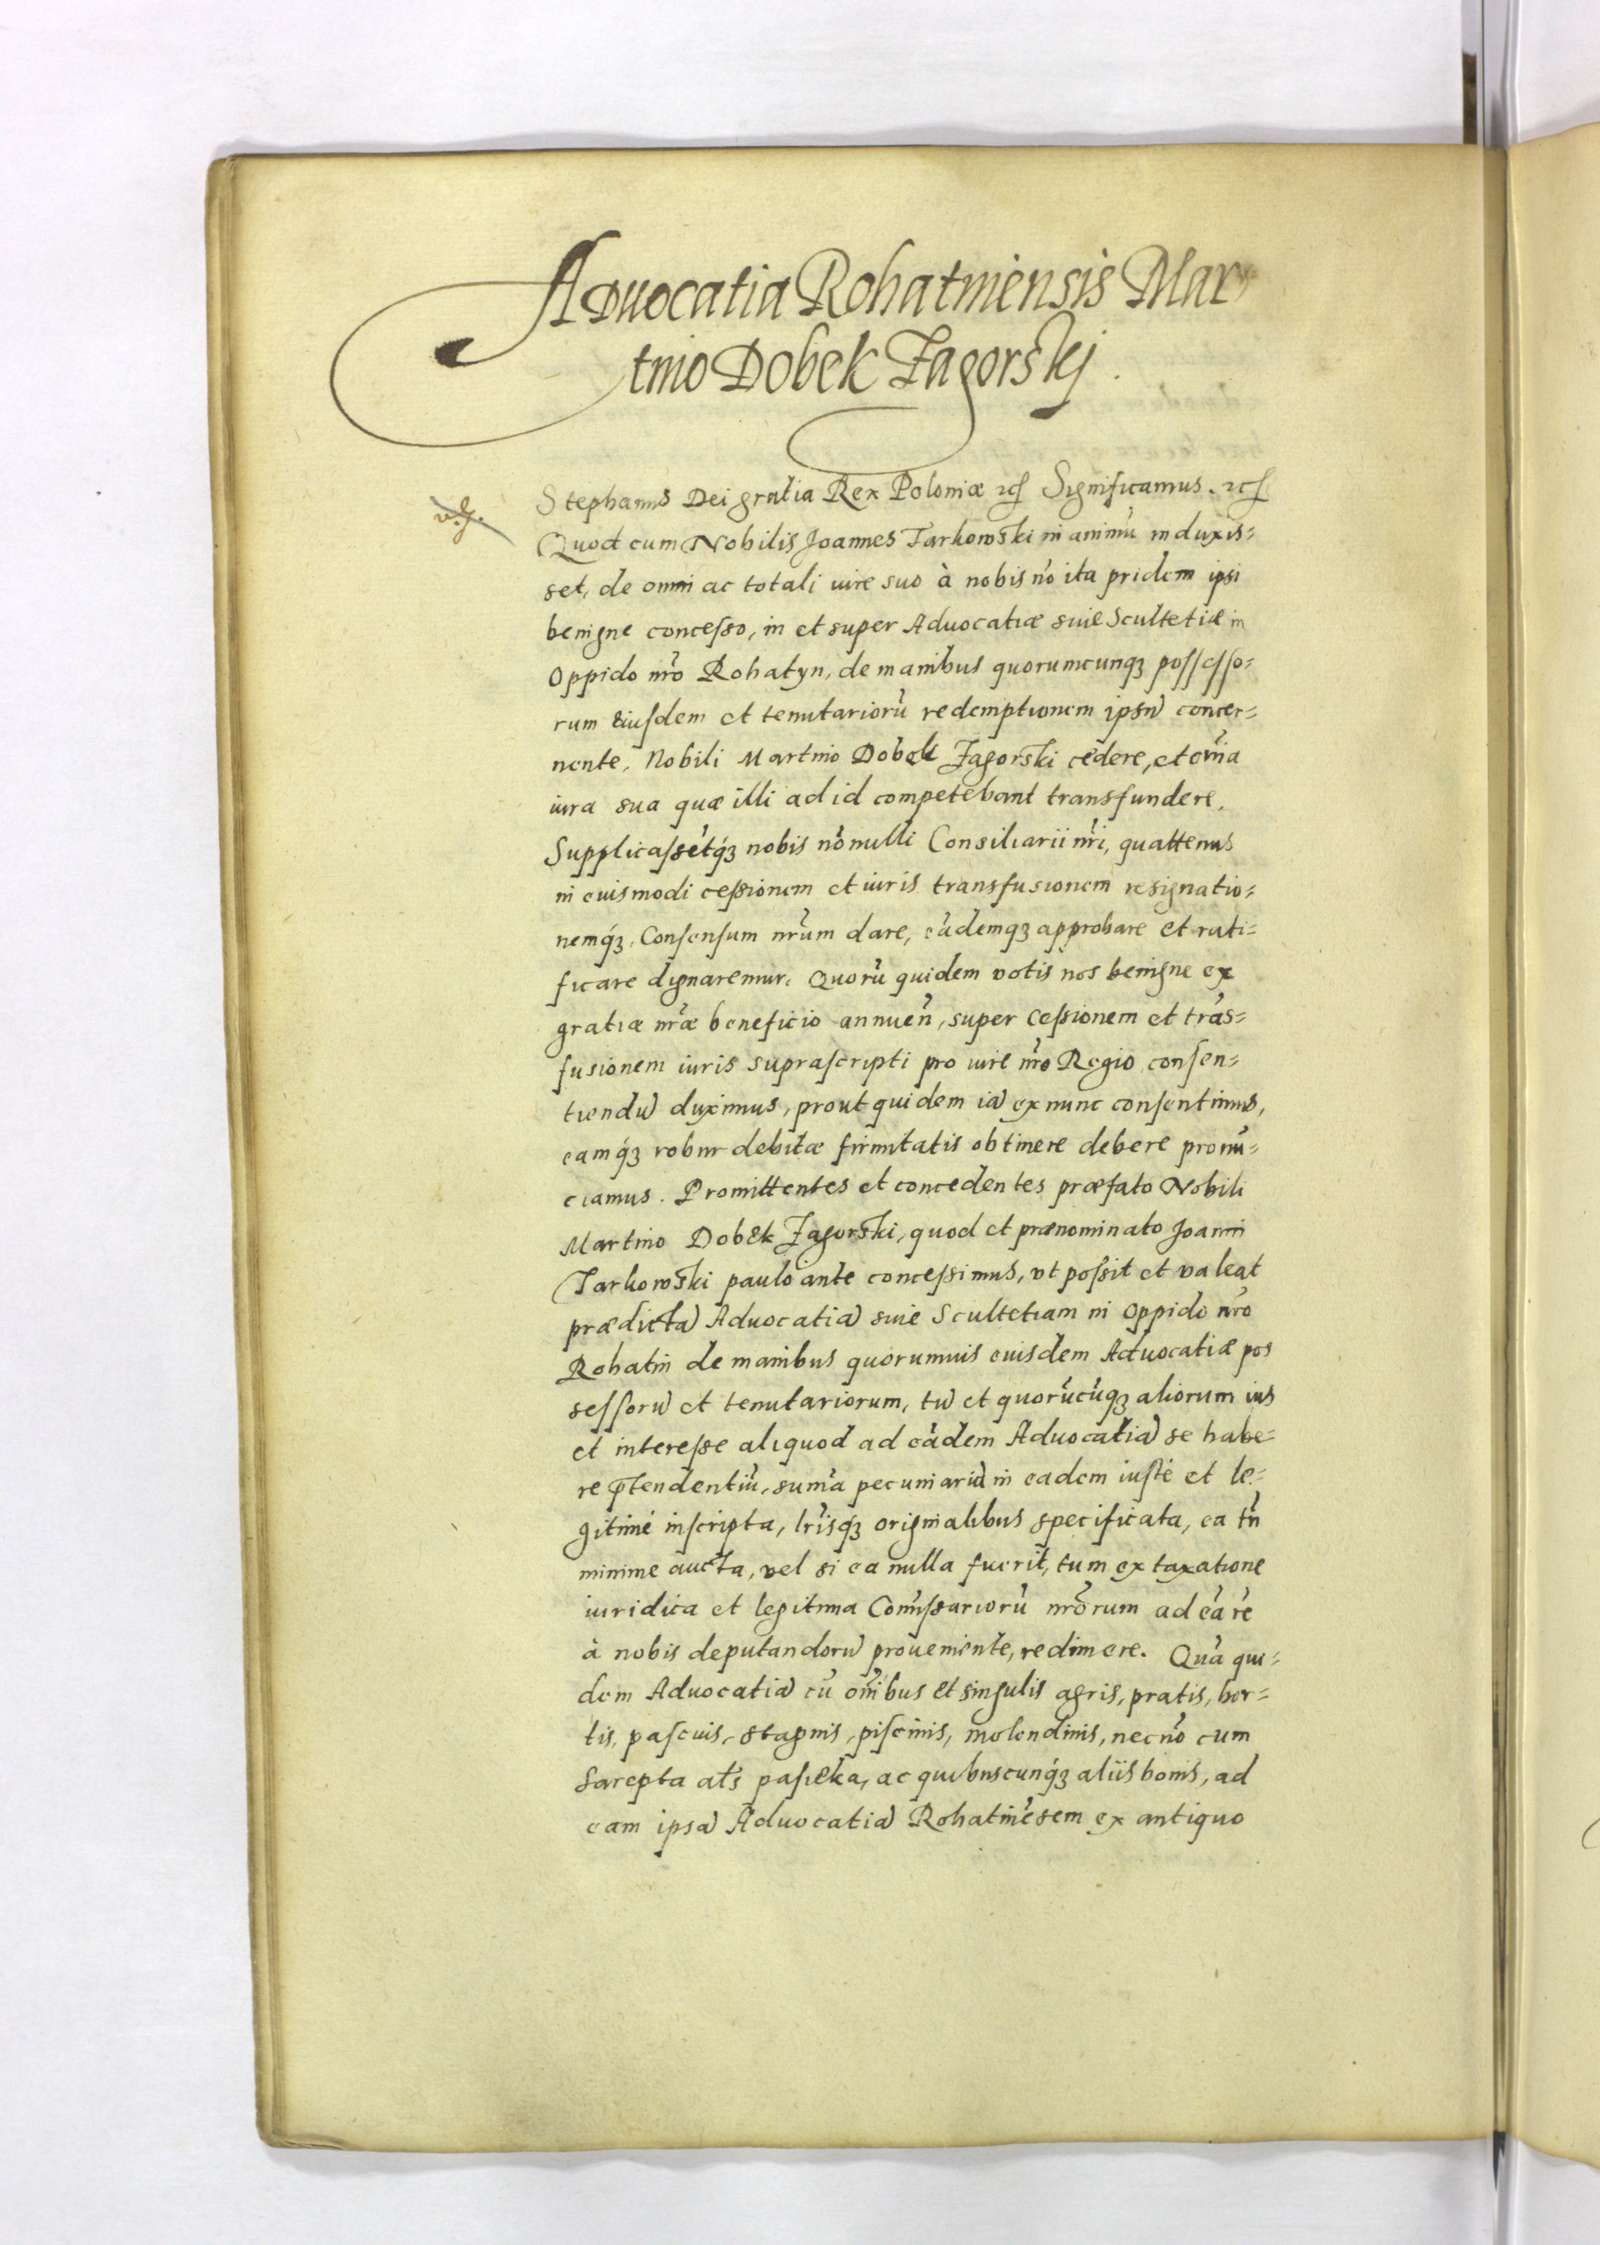 Aduocatia Rohatinensis Mar
tino Dobek Zagorskj.
v.g.
Stephanus Dei gratia Rex Poloniæ etc Significamus. etc
Quod cum Nobilis Joannes Tarkowski in animũ induxis=
set, de omni ac totali iure suo à nobis nõ ita pridem ipsi
benigne concesso, in et super Aduocatiæ siue Scultetiæ in
Oppido nrõ Rohatyn, de manibus quorumcunqꝫ possesso=
rum eiusdem et tenutariorũ redemptionem ipsũ concer=
nente, Nobili Martino Dobek Zagorski cedere, et oĩna
iura sua quæ illi ad id competebant transfundere.
Supplicassetqꝫ nobis nõnulli Consiliarii nr̃i, quattenus
in euismodi cessionem et iuris transfusionem resignatio=
nemqꝫ, Consensum nr̃um dare, eãdemqꝫ approbare et rati=
ficare dignaremur. Quorũ quidem votis nos benigne ex
gratiæ nr̃æ beneficio annueñ, super cessionem et trãs=
fusionem iuris suprascripti pro iure nr̃o Regio consen=
tiendũ duximus, prout quidem iã ex nunc consentimus,
eamqꝫ robur debitæ firmitatis obtinere debere pronũ=
ciamus. Promittentes et concedentes præfato Nobili
Martino Dobek Zagorski, quod et prænominato Joanni
Tarkowski paulo ante concessimus, vt possit et valeat
prædictã Aduocatiã siue Scultetiam in Oppido nr̃o
Rohatin de manibus quorumuis euisdem Aduocatiæ pos
sessorũ et tenutariorum, tũ et quorũcũqꝫ aliorum ius
et interesse aliquod ad eãdem Aduocatiã se habe=
re p̃tendentiũ, sum̃a pecuniariã in eadem iustè et le=
gitimè inscripta, lr̃isqꝫ originalibus specificata, ea tñ
minime aucta, vel si ea nulla fuerit, tum ex taxatione
iuridica et legitima Com̃issariorũ nr̃orum ad eã rẽ
à nobis deputandorũ proueniente, redimere. Quã qui=
dem Aduocatiã cũ om̃ibus et singulis agris, pratis, hor=
tis, pascuis, stagnis, piscinis, molendinis, necnõ cum
Sarepta al's pasieka, ac quibuscunqꝫ aliis bonis, ad
eam ipsã Aduocatiã Rohatinẽsem ex antiquo